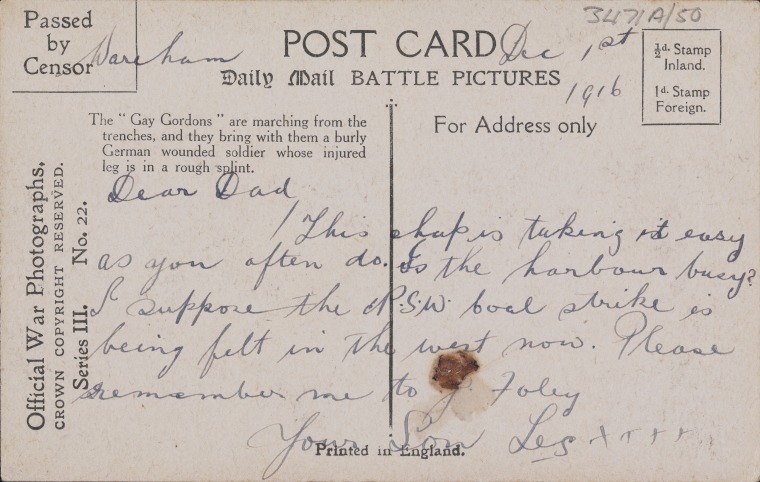 Passed
by
Censor
Wareham
POST CARD
Daily Mail BATTLE PICTURES
Dec 1st
1916
3471A/50
½d. Stamp
Inland.
1d. Stamp
Foreign.
The "Gay Gordons" are marching from the
trenches, and they bring with them a burly
German wounded soldier whose injured
leg is in a rough splint.
For Address only
Official War Photographs,
CROWN COPYRIGHT RESERVED.
Series III. No. 22.
Dear Dad
This chap is taking it easy
as you often do. Is the harbour busy?
I suppose the N.S.W. coal strike is
being felt in the west now. Please
remember me to J. Foley
Your Son Les x x x x
Printed in England.